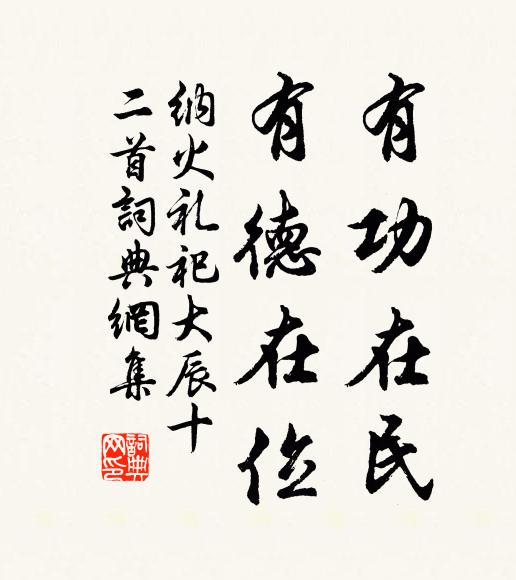 有功在民
有德在位
纳火礼祀大辰十
二首詞典網集
詞典
网印